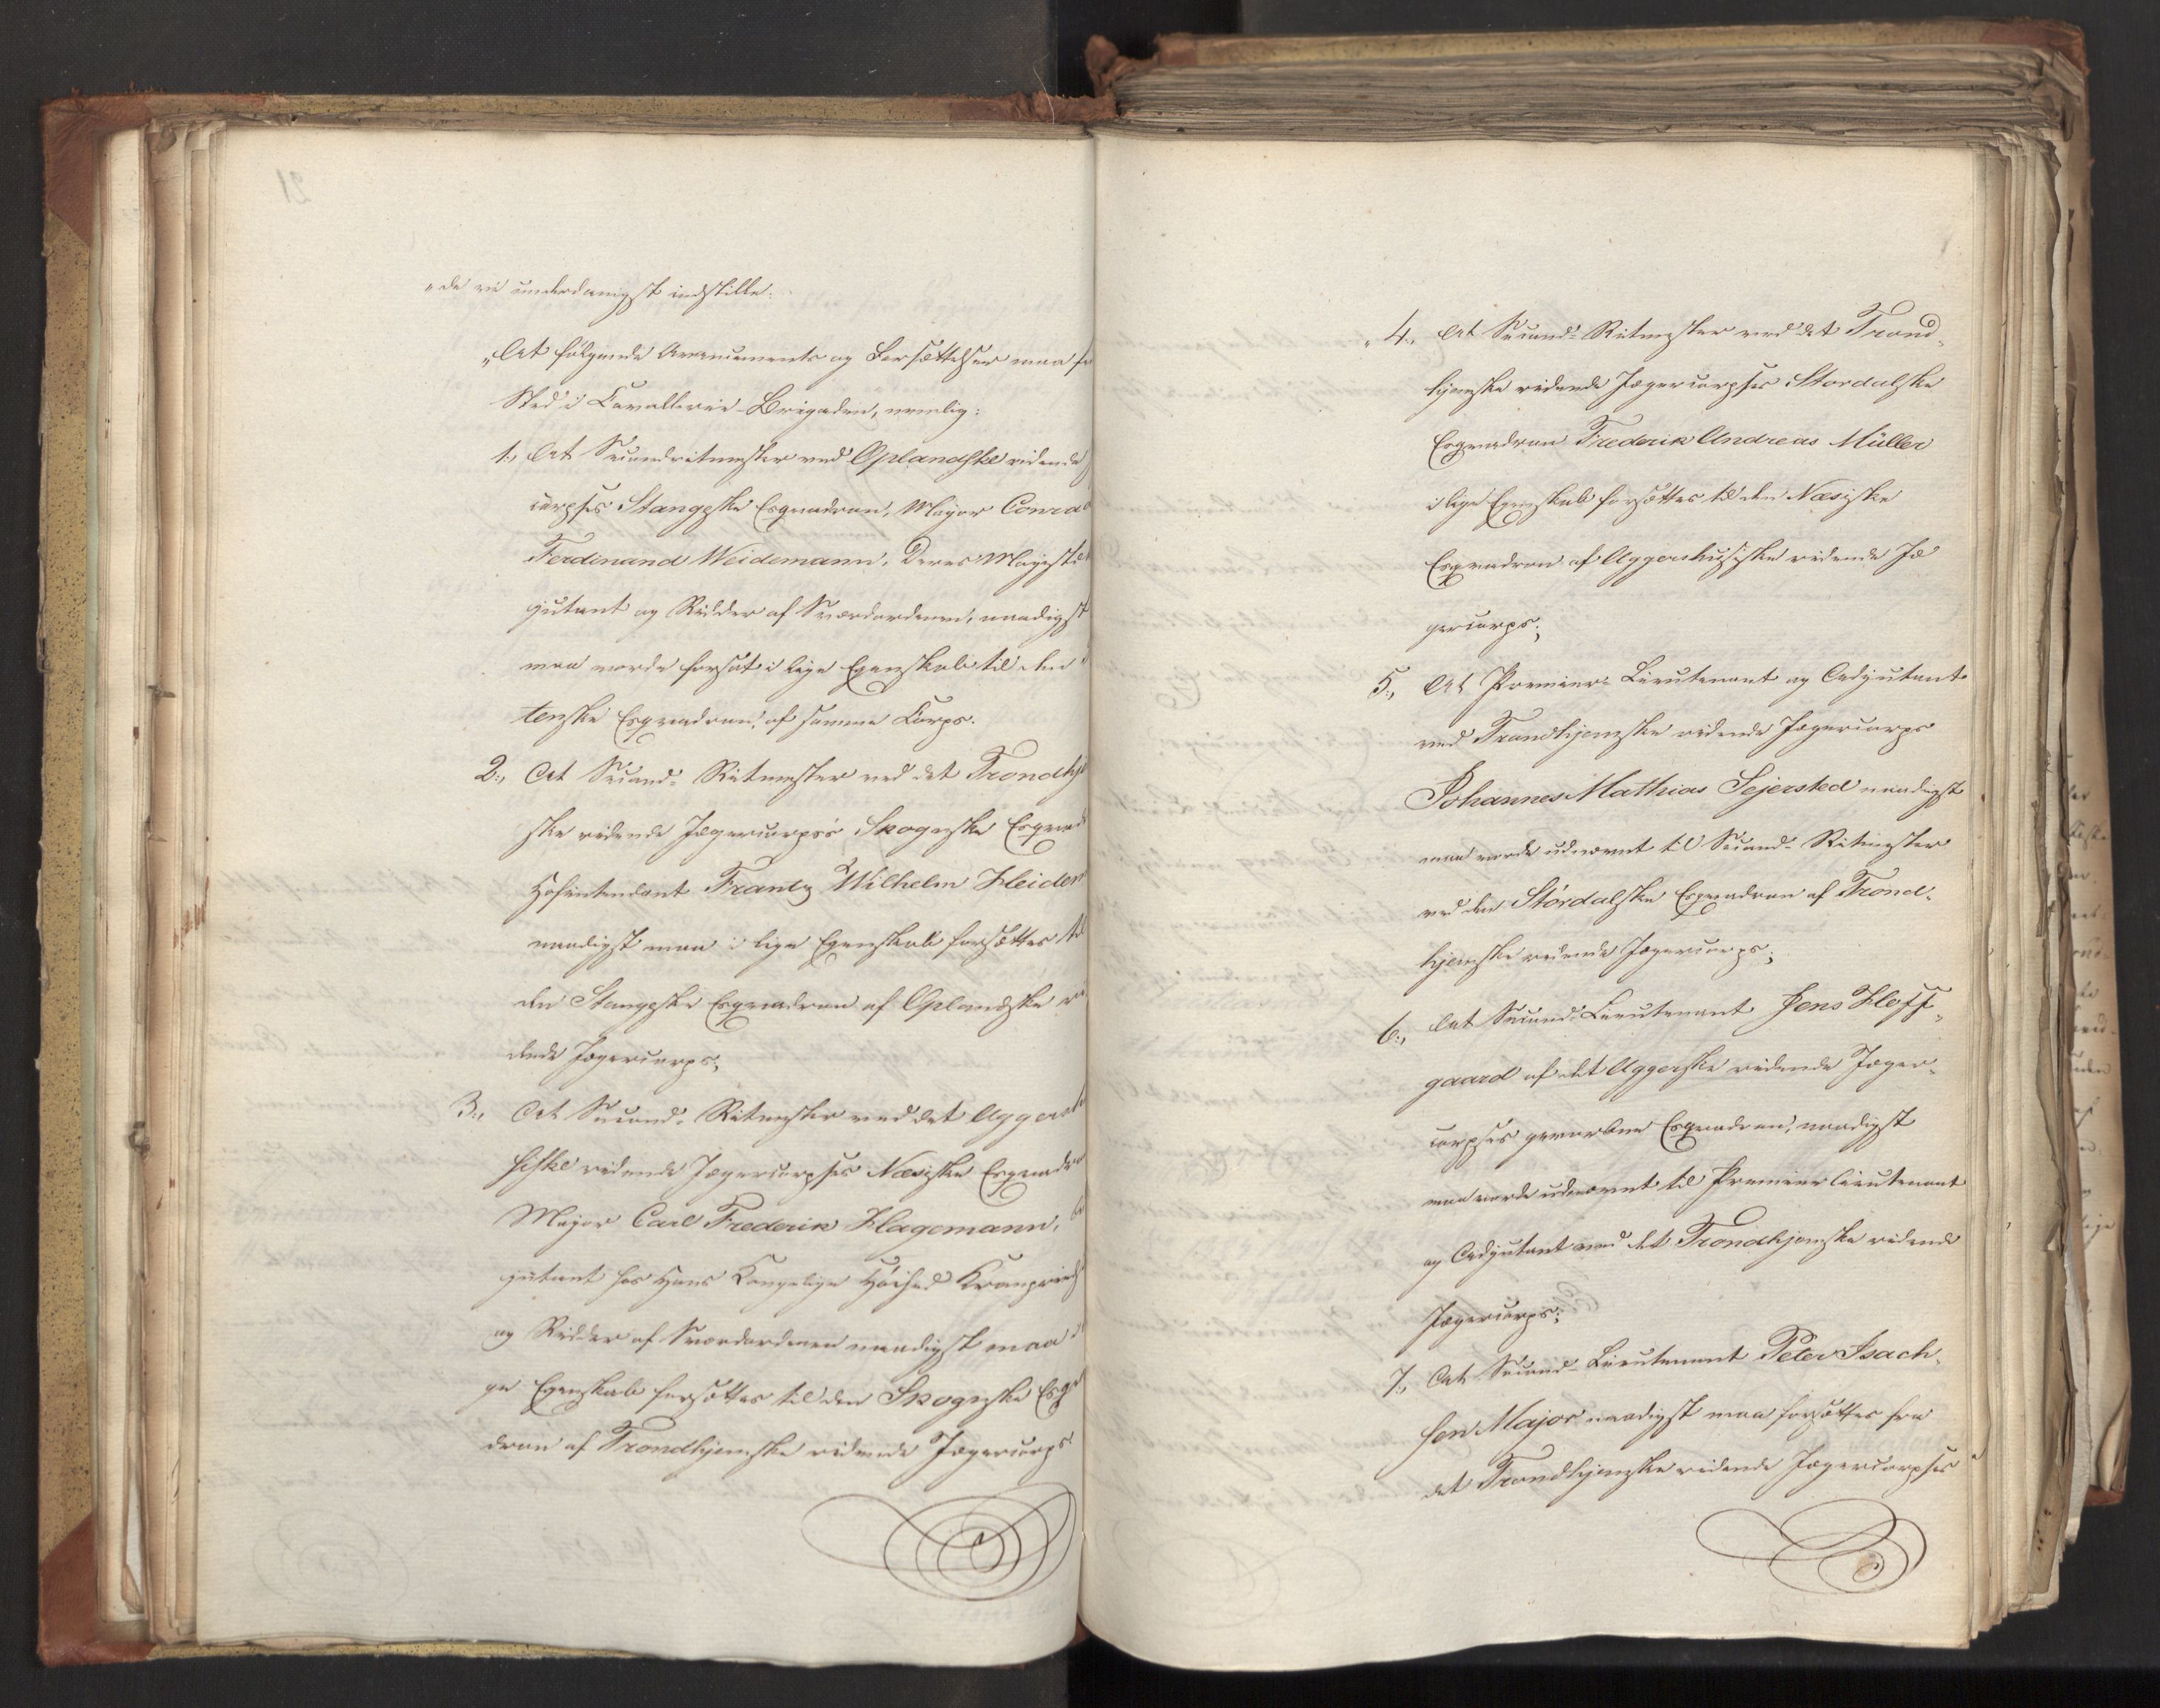 "de vi underdanigst indstille:
"At følgende Avancements og Forsættelser maa
Sted i Cavallerie-Brigaden, nemlig:
1., At Secondritmester ved Oplandske ridende
corpses Stangeske Esqvadron, Major Conrad
Ferdinand Weidemann, Deres Majestæt
jutant og Ridder af Sværdordenen, naadigst
maa vorde forsat i lige Egenskab til den
tenske Esqvadron, af samme Corps.
2., At Second-Ritmester ved det Trondhje
ske ridende Jægercorps's Skogenske Esqvad
Hofintendant Frantz Wilhelm Heiden
naadigst maa i lige Egenskab forsættes til
den Stangeske Esqvadron af Oplandske ri
dende Jægercorps;
3., At Second-Ritmester ved det Aggers
siske ridende Jægercorpses Næsiske Esqvadron
Major Carl Frederik Hagemann,
jutant hos Hans Kongelige Høihed Kronprinds
og Ridder af Sværdordenen naadigst maa i
ge Egenskab forsættes til den Skognske Esqva
dron af Trondhjemske ridende Jægercorps
"4., At Second-Ritmester ved det Trond-
hjemske ridende Jægercorpses Stordalske
Esqvadron Frederik Andreas Müller
i lige Egenskab forsættes til den Næsiske
Esqvadron af Aggershusiske ridende Jæ
gercorps;
5., At Premier-Lieutenant og Adjutant
ved Trondhjemske ridende Jægercorps
Johannes Mathias Sejersted naadigst
maa vorde udnævnt til Second-Ritmester
ved den Stördalske Esqvadron af Trond-
hjemske ridende Jægercorps;
6., At Second-Lieutenant Jens Hoff-
gaard af det Aggerske ridende Jæger-
corpses gevorbne Esqvadron, naadigst
maa vorde udnævnt til Premierlieutenant
og Adjutant ved det Trondhjemske ridende
Jægercorps;
7., At Second-Lieutenant Peter Isach-
sen Major naadigst maa forsættes fra
det Trondhjemske ridende Jægercorpses